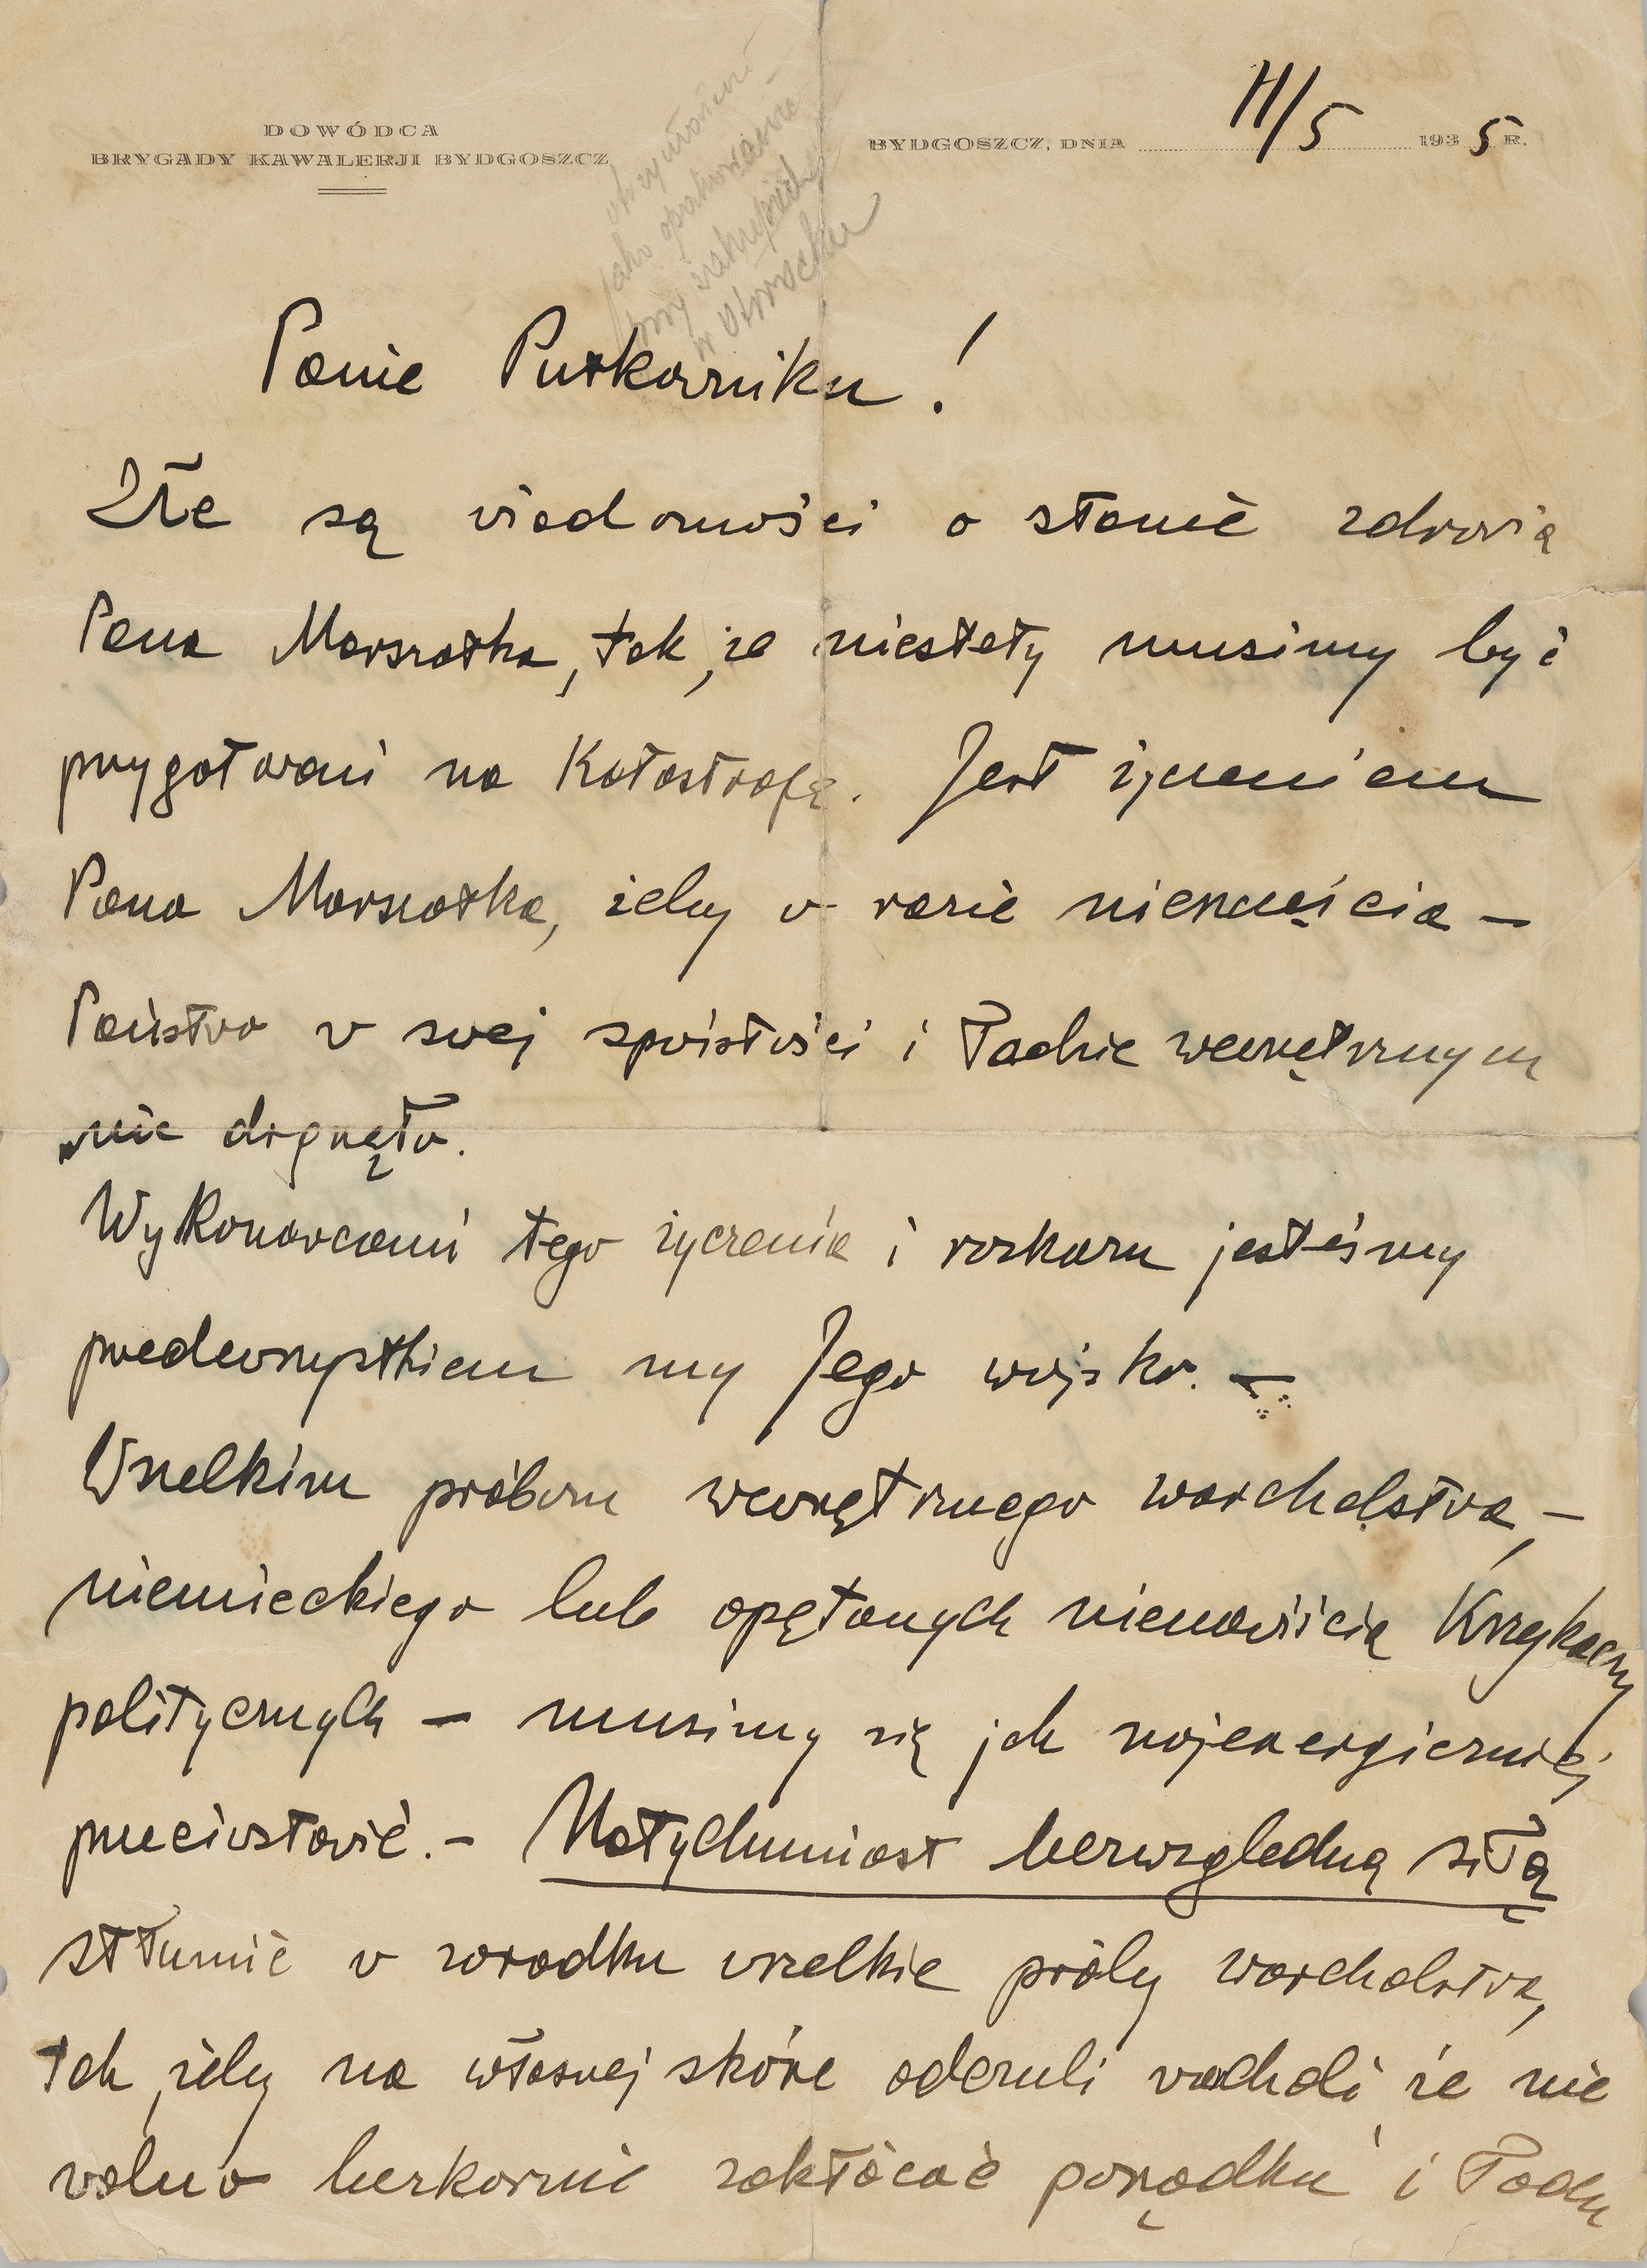 DOWÓDCA
BRYGADY KAWALERJI BYDGOSZCZ
BYDGOSZCZ, DNIA 11/5 1935 R.
otrzymałem
jako opakowanie
przy
w Otwocku
Panie Pułkowniku!
Złe są wiadomości o stanie zdrowia
Pana Marszałka, tak, że niestety musimy być
przygotowani na Katastrofę. Jest życzeniem
Pana Marszałka, żeby w razie nieszczęścia —
Państwo w swej spoistości i ładzie wewnętrznym
nie drgnęło.
Wykonawcami tego życzenia i rozkazu jesteśmy
przedewszystkiem my Jego wojsko. —
Wszelkim próbom wewnętrznego warcholstwa, —
niemieckiego lub opętanych nienawiścią Krzykaczy
politycznych — musimy się jak najenergiczniej
przeciwstawić. — Natychmiast bezwzględną siłą
stłumić w zarodku wszelkie próby warcholstwa,
tak, żeby na własnej skórze odczuli warcholi, że nie
wolno bezkarnie zakłócać porządku i ładu